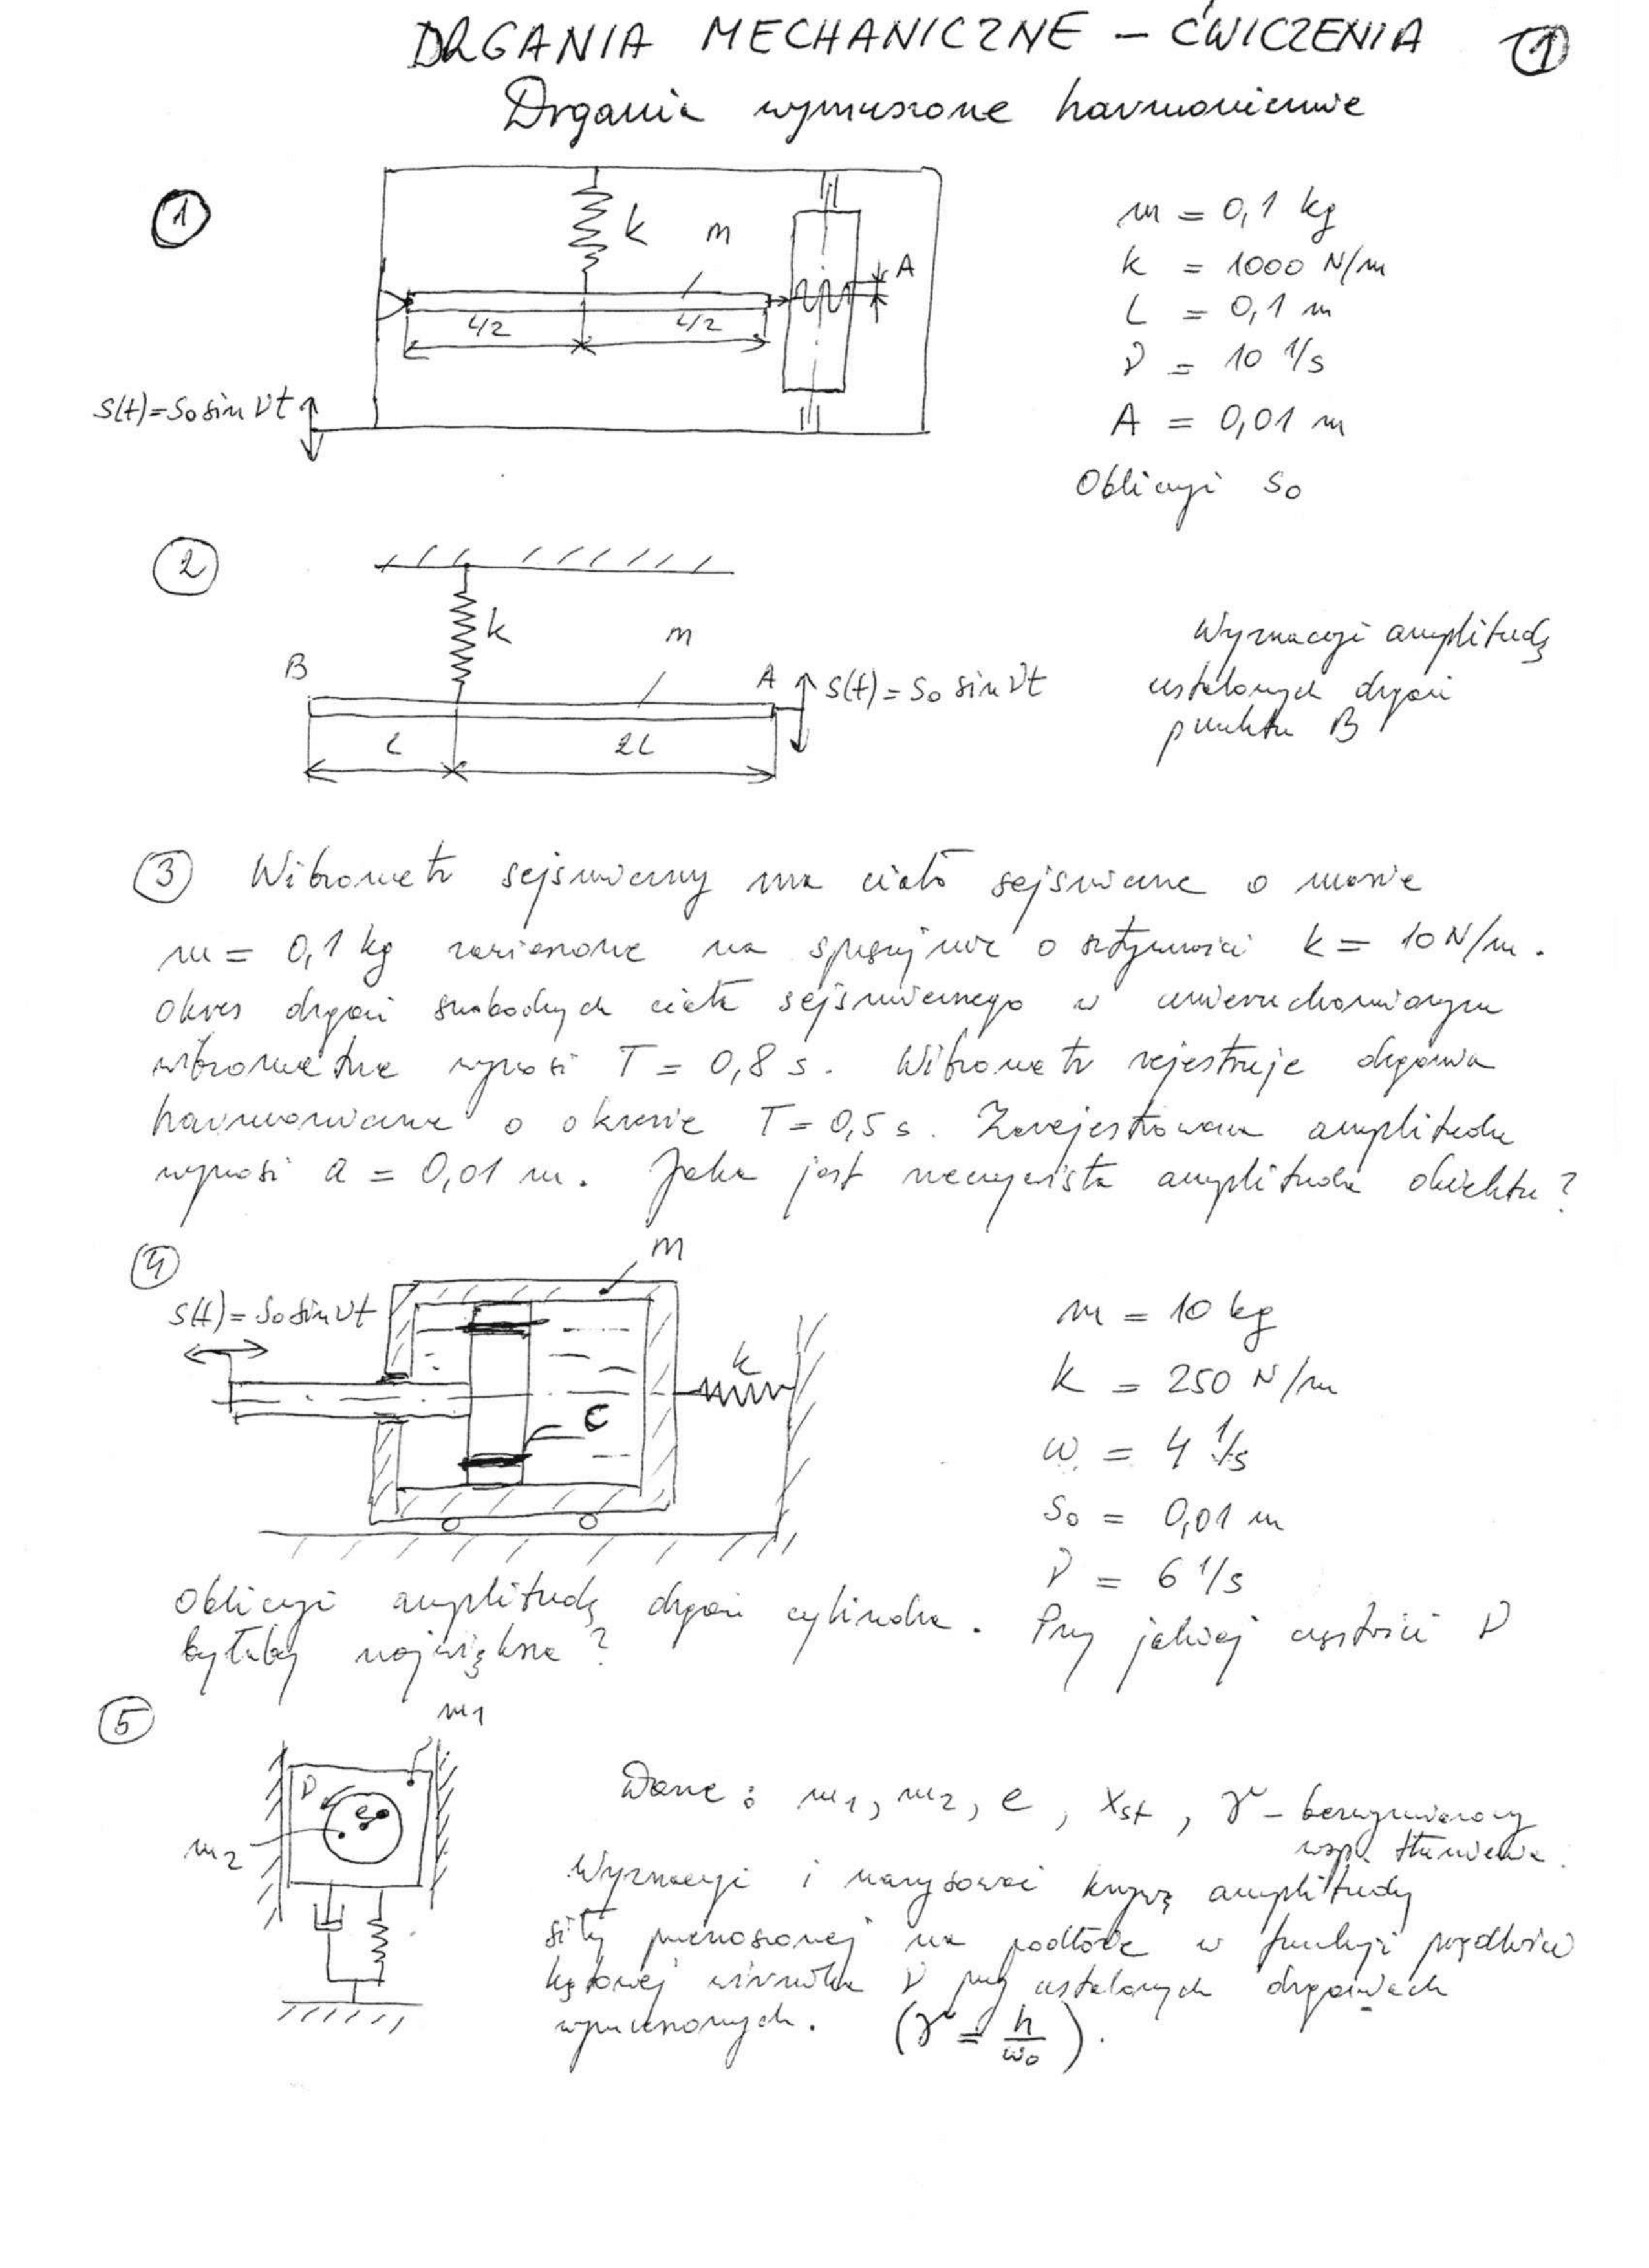 DRGANIA MECHANICZNE – ĆWICZENIA 1
Drgania wymuszone harmonicznie
1
k
m
A
L/2
L/2
S(t)=S₀ sin νt
m = 0,1 kg
k = 1000 N/m
L = 0,1 m
ν = 10 1/s
A = 0,01 m
Obliczyć S₀
2
k
m
B
A
S(t) = S₀ sin νt
L
2L
Wyznaczyć amplitudę
ustalonych drgań
punktu B
3 Wibrometr sejsmiczny ma ciało sejsmiczne o masie
m = 0,1 kg zawieszone na sprężynie o sztywności k = 10 N/m.
Okres drgań swobodnych ciała sejsmicznego w unieruchomionym
wibrometrze wynosi T = 0,8 s. Wibrometr rejestruje drgania
harmoniczne o okresie T = 0,5 s. Zarejestrowana amplituda
wynosi a = 0,01 m. Jaka jest rzeczywista amplituda obiektu?
4
m
S(t)=S₀ sin νt
k
C
m = 10 kg
k = 250 N/m
ω = 4 1/s
S₀ = 0,01 m
ν = 6 1/s
Obliczyć amplitudę drgań cylindra. Przy jakiej częstości ν
byłaby największa?
5
m₁
ν
e
m₂
Dane : m₁, m₂, e, xst, γ – bezwymiarowy
wsp. tłumienia.
Wyznaczyć i narysować krzywą amplitudy
siły przenoszonej na podłoże w funkcji prędkości
kątowej wirnika ν przy ustalonych drganiach
wymuszonych. (γ = h/ω₀).